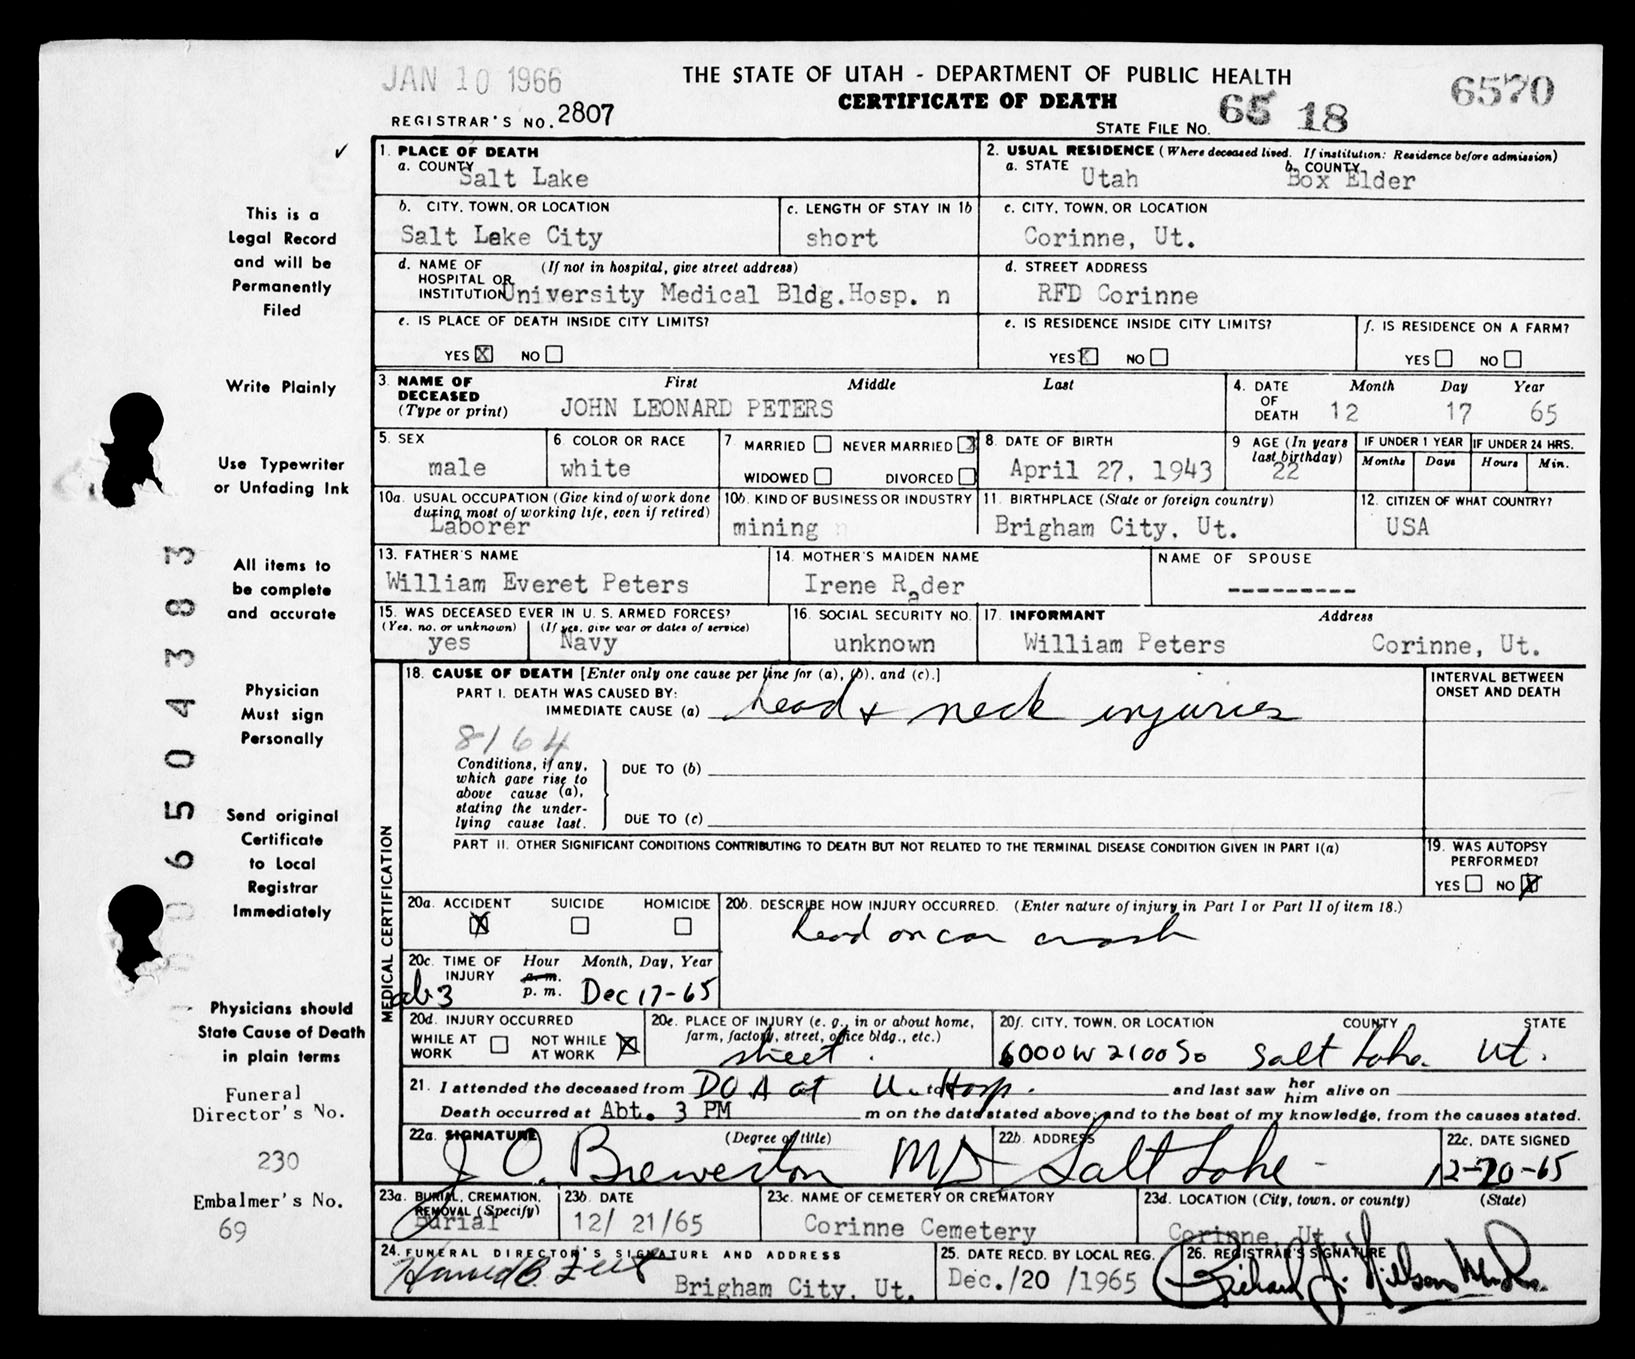 JAN 10 1966
THE STATE OF UTAH - DEPARTMENT OF PUBLIC HEALTH
CERTIFICATE OF DEATH
6570
REGISTRAR'S NO. 2807
STATE FILE NO. 65 18
✓
This is a
Legal Record
and will be
Permanently
Filed
Write Plainly
Use Typewriter
or Unfading Ink
All items to
be complete
and accurate
Physician
Must sign
Personally
Send original
Certificate
to Local
Registrar
Immediately
Physicians should
State Cause of Death
in plain terms
Funeral
Director's No.
230
Embalmer's No.
69
0065043083
1. PLACE OF DEATH
a. COUNTY Salt Lake
2. USUAL RESIDENCE (Where deceased lived. If institution: Residence before admission)
a. STATE Utah b. COUNTY Box Elder
b. CITY, TOWN, OR LOCATION Salt Lake City
c. LENGTH OF STAY IN 1b short
c. CITY, TOWN, OR LOCATION Corinne, Ut.
d. NAME OF HOSPITAL OR INSTITUTION (If not in hospital, give street address) University Medical Bldg.Hosp. n
d. STREET ADDRESS RFD Corinne
e. IS PLACE OF DEATH INSIDE CITY LIMITS?
YES X NO
e. IS RESIDENCE INSIDE CITY LIMITS?
YES X NO
f. IS RESIDENCE ON A FARM?
YES NO
3. NAME OF DECEASED (Type or print)
First Middle Last
JOHN LEONARD PETERS
4. DATE OF DEATH
Month Day Year
12 17 65
5. SEX male
6. COLOR OR RACE white
7 MARRIED NEVER MARRIED X
WIDOWED DIVORCED
8. DATE OF BIRTH April 27, 1943
9 AGE (In years last birthday) 22
IF UNDER 1 YEAR IF UNDER 24 HRS.
Months Days Hours Min.
10a. USUAL OCCUPATION (Give kind of work done during most of working life, even if retired) Laborer
10b. KIND OF BUSINESS OR INDUSTRY mining
11. BIRTHPLACE (State or foreign country) Brigham City, Ut.
12. CITIZEN OF WHAT COUNTRY? USA
13. FATHER'S NAME William Everet Peters
14. MOTHER'S MAIDEN NAME Irene Rader
NAME OF SPOUSE ---------
15. WAS DECEASED EVER IN U. S. ARMED FORCES?
(Yes, no, or unknown) yes
(If yes, give war or dates of service) Navy
16. SOCIAL SECURITY NO. unknown
17. INFORMANT Address
William Peters Corinne, Ut.
MEDICAL CERTIFICATION
18. CAUSE OF DEATH [Enter only one cause per line for (a), (b), and (c).]
PART I. DEATH WAS CAUSED BY:
IMMEDIATE CAUSE (a) head & neck injuries
INTERVAL BETWEEN ONSET AND DEATH
8164
Conditions, if any, which gave rise to above cause (a), stating the underlying cause last.
DUE TO (b)
DUE TO (c)
PART II. OTHER SIGNIFICANT CONDITIONS CONTRIBUTING TO DEATH BUT NOT RELATED TO THE TERMINAL DISEASE CONDITION GIVEN IN PART I(a)
19. WAS AUTOPSY PERFORMED?
YES NO X
20a. ACCIDENT SUICIDE HOMICIDE
X
20b. DESCRIBE HOW INJURY OCCURRED. (Enter nature of injury in Part I or Part II of item 18.)
head on car crash
20c. TIME OF INJURY Hour Month, Day, Year
a. m.
p. m.
ab 3 Dec 17-65
20d. INJURY OCCURRED
WHILE AT WORK NOT WHILE AT WORK X
20e. PLACE OF INJURY (e. g., in or about home, farm, factory, street, office bldg., etc.)
street.
20f. CITY, TOWN, OR LOCATION COUNTY STATE
6000 W 2100 So Salt Lake. Ut.
21. I attended the deceased from DOA at U. to Hosp. and last saw her him alive on
Death occurred at Abt. 3 PM m on the date stated above; and to the best of my knowledge, from the causes stated.
22a. SIGNATURE (Degree or title)
J O. Brewerton MD
22b. ADDRESS Salt Lake -
22c. DATE SIGNED 12-20-65
23a. BURIAL, CREMATION, REMOVAL (Specify) Burial
23b. DATE 12/ 21/65
23c. NAME OF CEMETERY OR CREMATORY Corinne Cemetery
23d. LOCATION (City, town, or county) (State)
Corinne, Ut.
24. FUNERAL DIRECTOR'S SIGNATURE AND ADDRESS
Harold B. Felt Brigham City, Ut.
25. DATE RECD. BY LOCAL REG. Dec./20 /1965
26. REGISTRAR'S SIGNATURE
Richard J. Nilson